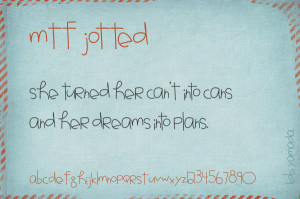 mtf jotted
she turned her can't into cans
and her dreams into plans.
abcdefghijklmnopqrstuvwxyz1234567890